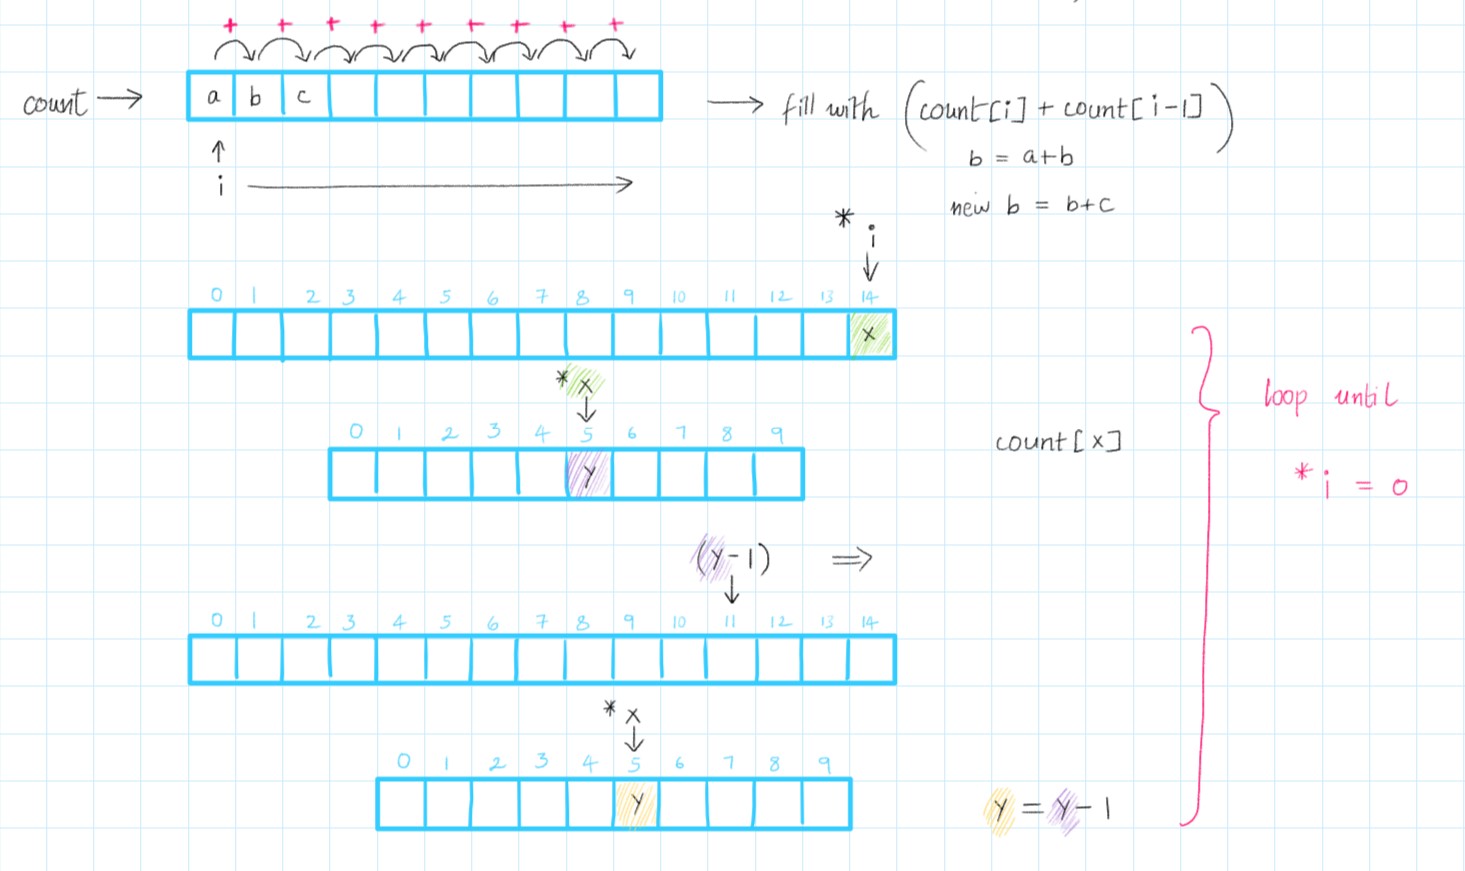 + + + + + + + + +
count → a b c → fill with (count[i] + count[i-1])
b = a+b
↑
i →
new b = b+c
* i
↓
0 1 2 3 4 5 6 7 8 9 10 11 12 13 14
x
* x
↓
loop until
0 1 2 3 4 5 6 7 8 9
count[x]
y
* i = 0
(y-1) ⇒
↓
0 1 2 3 4 5 6 7 8 9 10 11 12 13 14
* x
↓
0 1 2 3 4 5 6 7 8 9
y
y = y-1